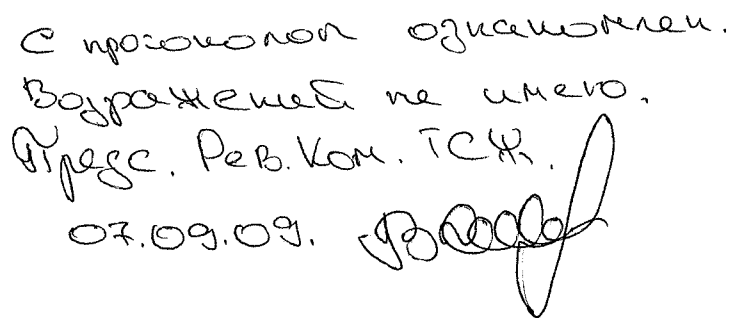 С протоколом ознакомлен.
Возражений не имею.
Предс. Рев. Ком. ТСЖ.
07.09.09.